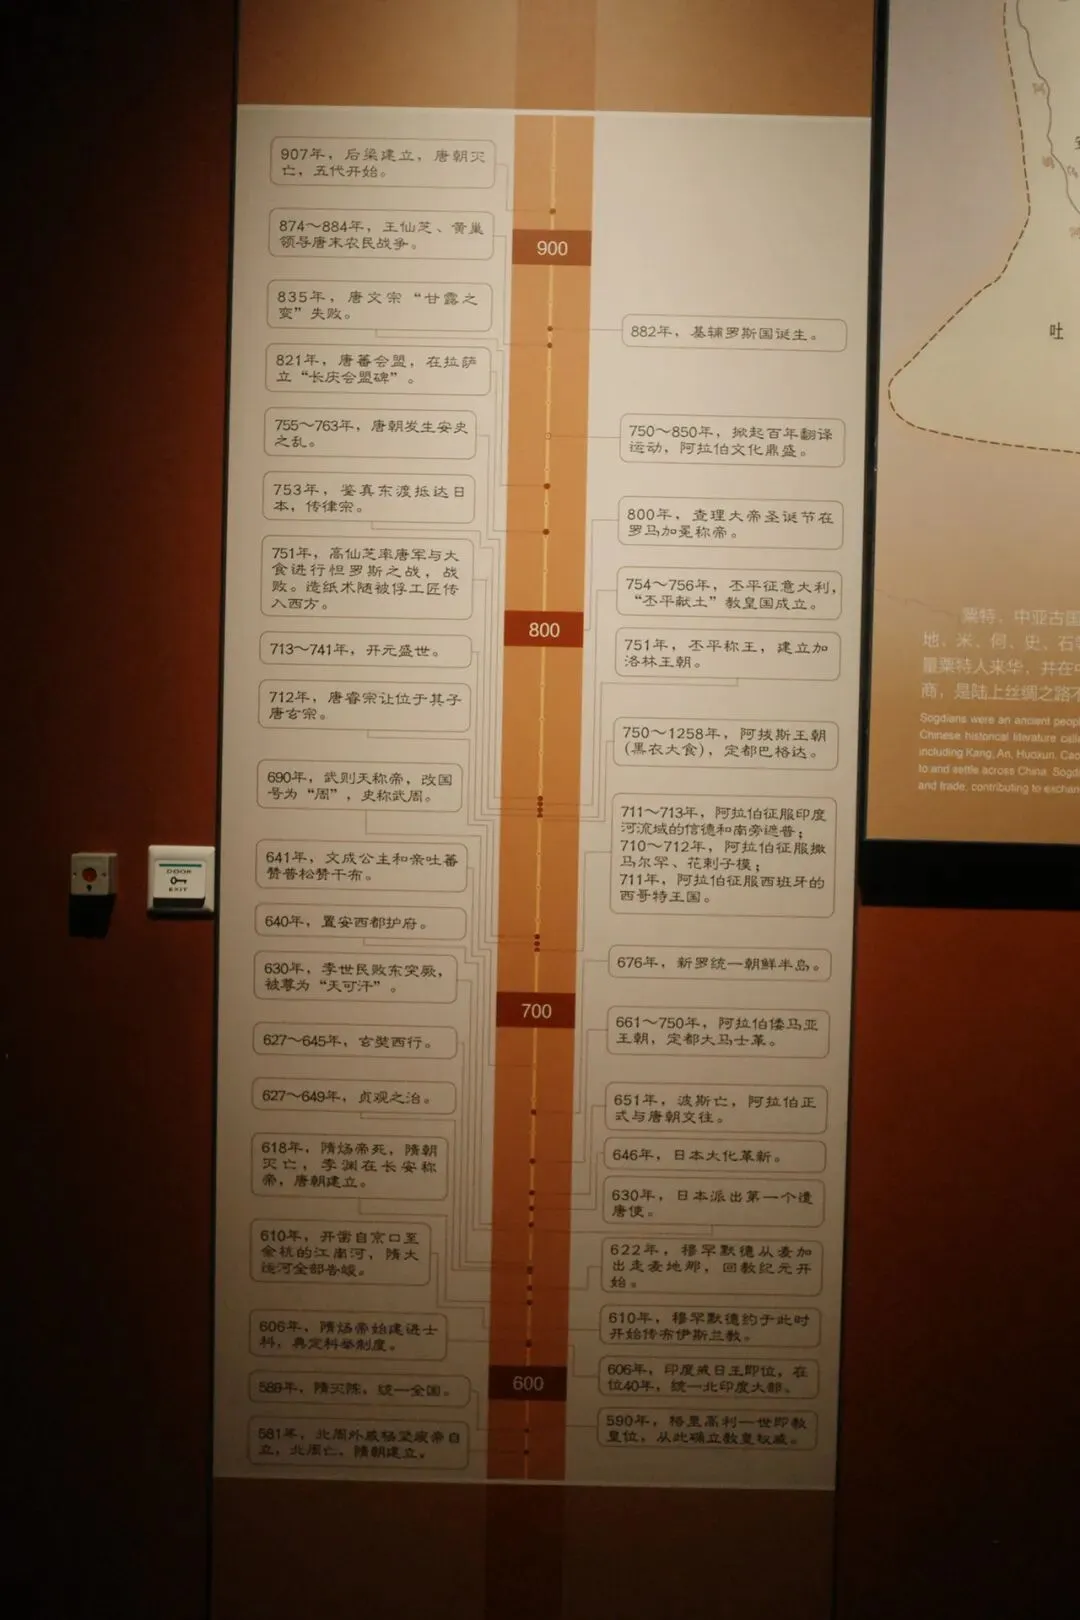 907年，后梁建立，唐朝灭
亡，五代开始。
874～884年，王仙芝、黄巢
领导唐末农民战争。
835年，唐文宗“甘露之
变”失败。
821年，唐蕃会盟，在拉萨
立“长庆会盟碑”。
755～763年，唐朝发生安史
之乱。
753年，鉴真东渡抵达日
本，传律宗。
751年，高仙芝率唐军与大
食进行怛罗斯之战，战
败。造纸术随被俘工匠传
入西方。
713～741年，开元盛世。
712年，唐睿宗让位于其子
唐玄宗。
690年，武则天称帝，改国
号为“周”，史称武周。
641年，文成公主和亲吐蕃
赞普松赞干布。
640年，置安西都护府。
630年，李世民败东突厥，
被尊为“天可汗”。
627～645年，玄奘西行。
627～649年，贞观之治。
618年，隋炀帝死，隋朝
灭亡，李渊在长安称
帝，唐朝建立。
610年，开凿自京口至
余杭的江南河，隋大
运河全部告竣。
606年，隋炀帝始建进士
科，典定科举制度。
589年，隋灭陈，统一全国。
581年，北周外戚杨坚废帝自
立，北周亡，隋朝建立。
900
800
700
600
882年，基辅罗斯国诞生。
750～850年，掀起百年翻译
运动，阿拉伯文化鼎盛。
800年，查理大帝圣诞节在
罗马加冕称帝。
754～756年，丕平征意大利，
“丕平献土”教皇国成立。
751年，丕平称王，建立加
洛林王朝。
750～1258年，阿拔斯王朝
（黑衣大食），定都巴格达。
711～713年，阿拉伯征服印度
河流域的信德和南旁遮普；
710～712年，阿拉伯征服撒
马尔罕、花剌子模；
711年，阿拉伯征服西班牙的
西哥特王国。
676年，新罗统一朝鲜半岛。
661～750年，阿拉伯倭马亚
王朝，定都大马士革。
651年，波斯亡，阿拉伯正
式与唐朝交往。
646年，日本大化革新。
630年，日本派出第一个遣
唐使。
622年，穆罕默德从麦加
出走麦地那，回教纪元开
始。
610年，穆罕默德约于此时
开始传布伊斯兰教。
606年，印度戒日王即位，在
位40年，统一北印度大部。
590年，格里高利一世即教
皇位，从此确立教皇权威。
DOOR
EXIT
吐
粟特，中亚古国
地、米、何、史、石
量粟特人来华，并在中
商，是陆上丝绸之路
Sogdians were an ancient peop
Chinese historical literature calle
including Kang, An, Huoxun, Cao
to and settle across China. Sogdi
and trade, contributing to exchan